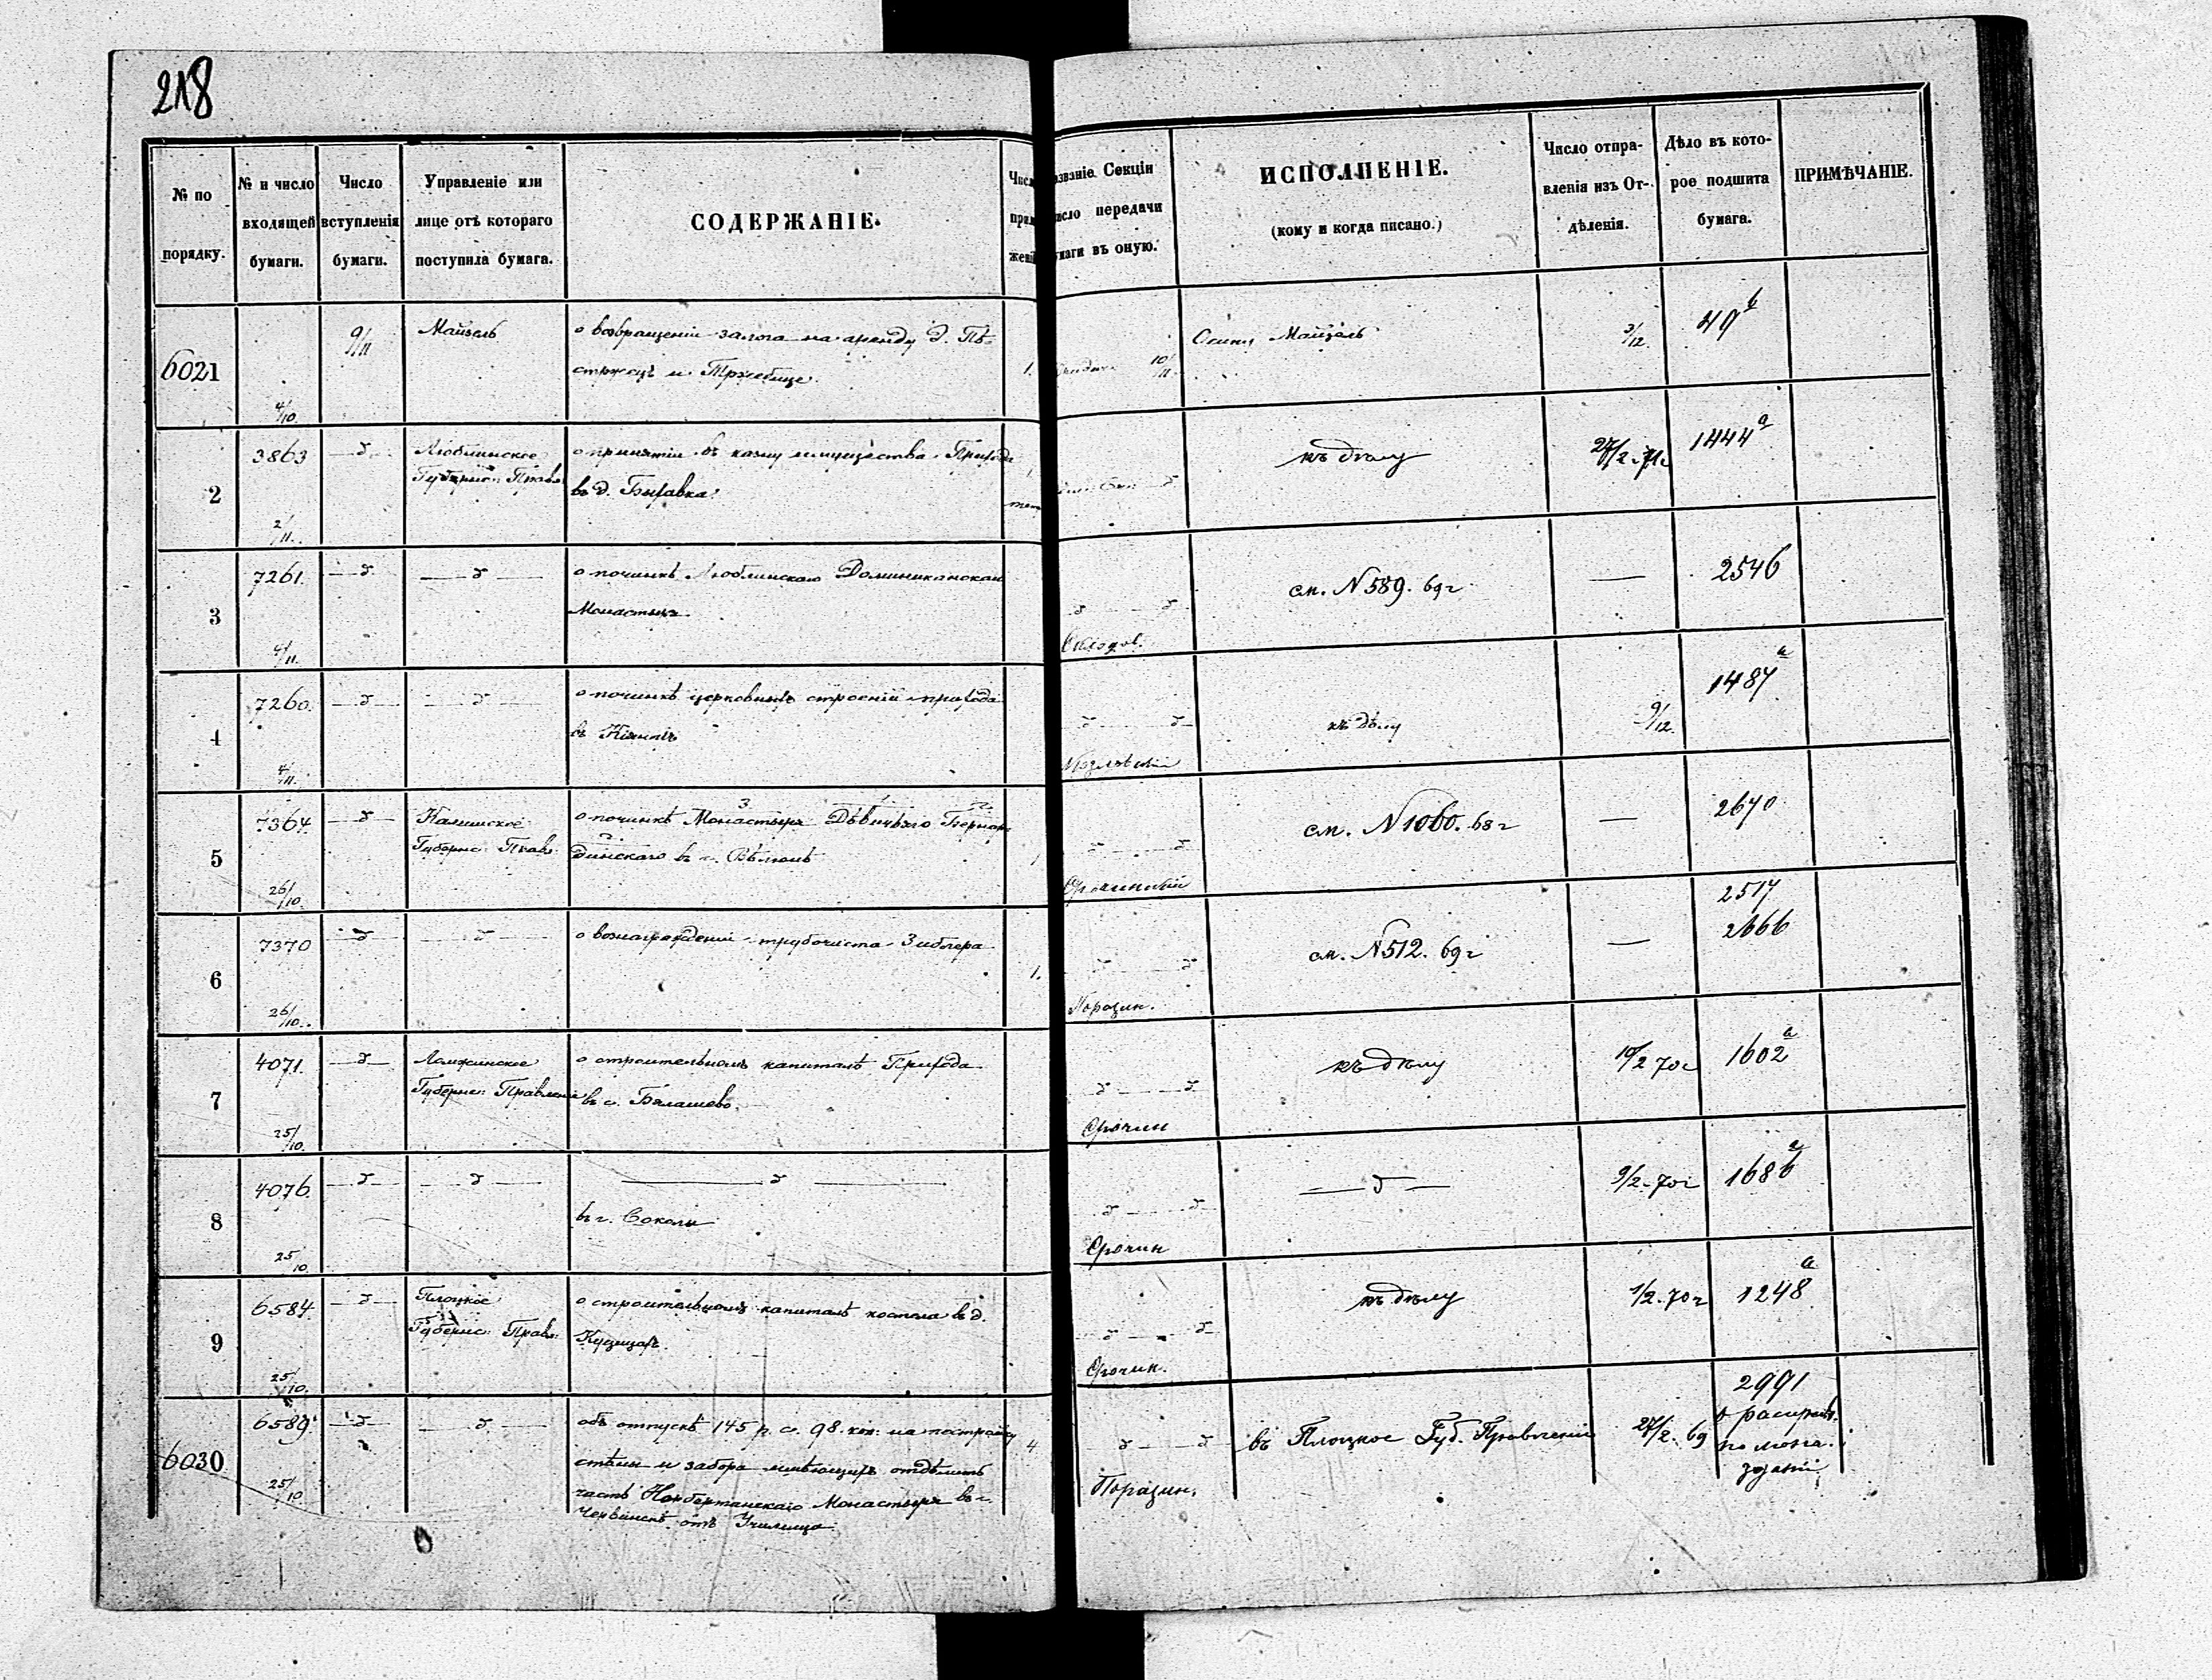 218
№ по
порядку.
№ и число
входящей
бумаги.
Число
вступленія
бумаги.
Управленіе или
лице отъ котораго
поступила бумага.
СОДЕРЖАНІЕ.
Числ
прил
жені
азваніе Секціи
исло передачи
маги въ оную.
ИСПОЛНЕНІЕ.
(кому и когда писано.)
Число отпра-
вленія изъ От-
дѣленія.
Дѣло въ кото-
рое подшита
бумага.
ПРИМѢЧАНІЕ.
6021
4/10.
9/11
Майзель
о возвращеніи залога на аренду д. Пѣ-
стржецъ и Тржебице.
1.
10/11.
Майзель
3/12.
49 b
2
3863
2/11.
—д—
Люблинское
Губернс: Правл
о принятіи въ казну имущества Прихода
въ д. Быхавка.
д
къ дѣлу
27/2 71г
1444 a
3
7261.
4/11.
—д—
—д—
о починкѣ Люблинскаго Доминиканскаго
Монастыря
д — д
см. N 589. 69 г
—
2546
4
7260.
4/11.
—д—
—д—
о починкѣ церковныхъ строеній прихода
въ
д — д
къ дѣлу
9/12.
1487 a
5
7364.
26/10.
—д—
Калишское
Губернс: Правл:
о починкѣ Монастыря Дѣвичьяго Бернар
динскаго въ г. Вѣлюнѣ
1
д — д
Срочинскій
см. N 1060. 68 г
—
2670
6
7370
26/10.
—д—
—д—
о вознагражденіи трубочиста Зиблера
1.
д — д
Поразин.
см. N 512. 69 г
—
2517
2666
7
4071.
25/10.
—д—
Ломжинское
Губернс: Правленіе
о строительномъ капиталѣ Прихода
въ с. Бялашево.
д — д
Срочин
къ дѣлу
10/2 70г
1602 a
8
4076.
25/10.
—д—
—д—
—д—
въ г. Соколы
д — д
Срочин
—д—
9/2 70г
1686 a
9
6584.
25/10.
—д—
Плоцкое
Губернс: Правл:
о строительномъ капиталѣ костела въ д.
д — д
Срочин.
къ дѣлу
1/2. 70 г
1248 a
6030
6589.
25/10
—д—
—д—
объ отпускѣ 145 р. с. 98. коп: на постройку
стѣны и забора имѣющихъ отдѣлить
часть Норбертанскаго Монастыря въ г.
Червинскѣ отъ Училища
4
д — д
Поразин.
въ Плоцкое Губ. Правленіе
27/2. 69
2991